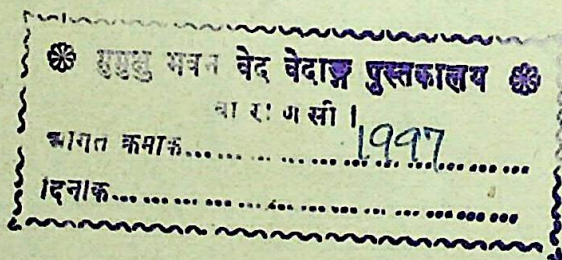 मुमुक्षु भवन वेद वेदाङ्ग पुस्तकालय
वाराणसी ।
आगत क्रमाक........................1997
दिनाक........................